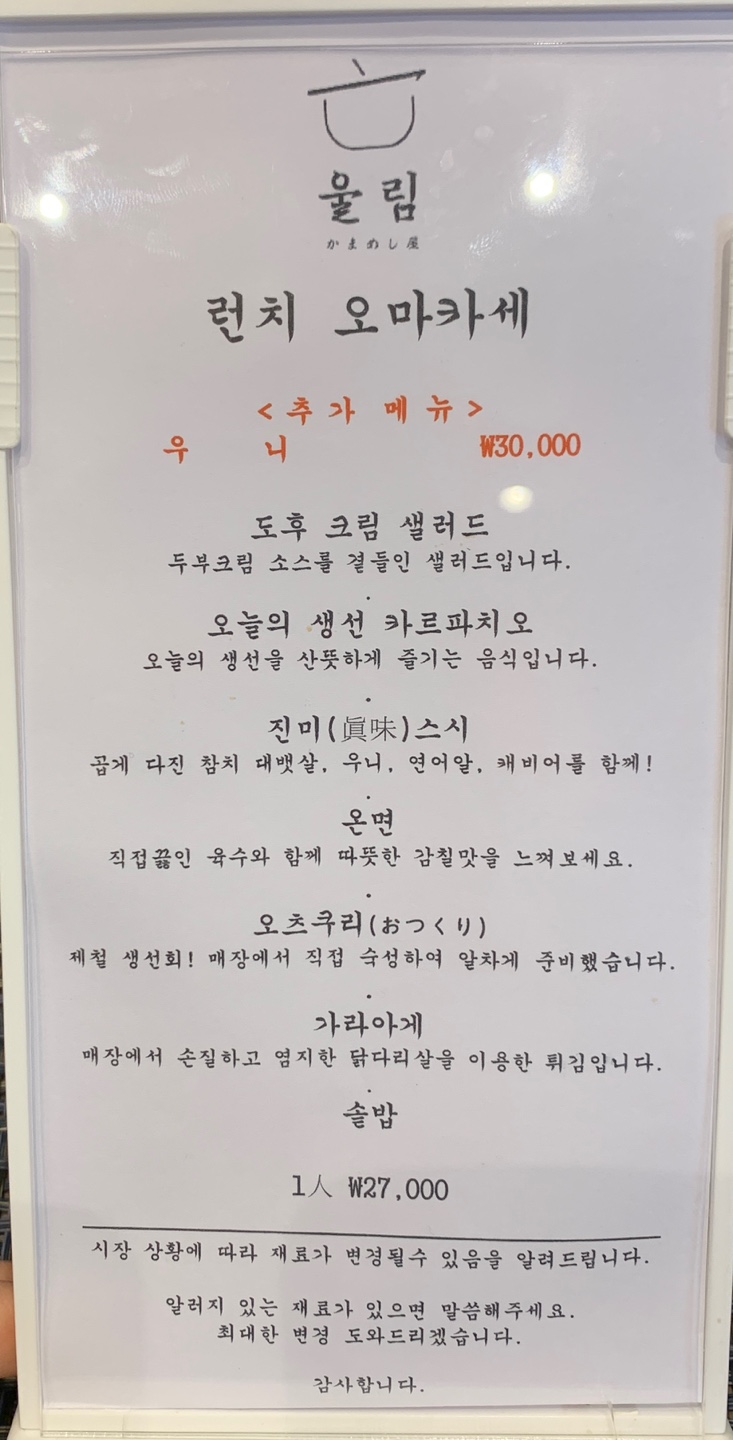 울림
かまめし屋
런치 오마카세
<추가 메뉴>
우 니 ₩30,000
도후 크림 샐러드
두부크림 소스를 곁들인 샐러드입니다.
.
오늘의 생선 카르파치오
오늘의 생선을 산뜻하게 즐기는 음식입니다.
.
진미(眞味)스시
곱게 다진 참치 대뱃살, 우니, 연어알, 캐비어를 함께!
.
온면
직접끓인 육수와 함께 따뜻한 감칠맛을 느껴보세요.
.
오츠쿠리(おつくり)
제철 생선회! 매장에서 직접 숙성하여 알차게 준비했습니다.
.
가라아게
매장에서 손질하고 염지한 닭다리살을 이용한 튀김입니다.
.
솥밥
1人 ₩27,000
시장 상황에 따라 재료가 변경될수 있음을 알려드립니다.
알러지 있는 재료가 있으면 말씀해주세요.
최대한 변경 도와드리겠습니다.
감사합니다.